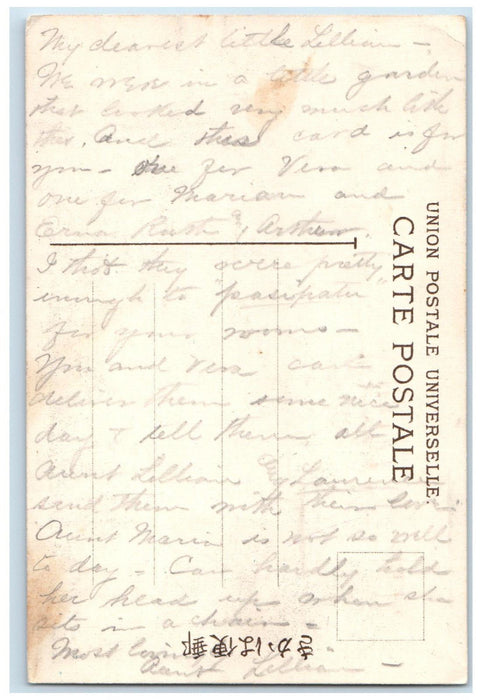 My dearest little Lillian -
We were in a little garden
that looked very much like
this. And this card is for
you - one for Vera and
one for Marian and
Erna Ruth & Arthur.
I thot they were pretty
enough to "passpatu"
for your rooms -
You and Vera can
deliver them some nice
day & tell them all
Aunt Lillian & Laurence
send them with their love
Aunt Maria is not so well
to day - Can hardly hold
her head up when she
sits in a chair -
Most loving
Aunt Lillian -
UNION POSTALE UNIVERSELLE.
CARTE POSTALE
郵便はかき